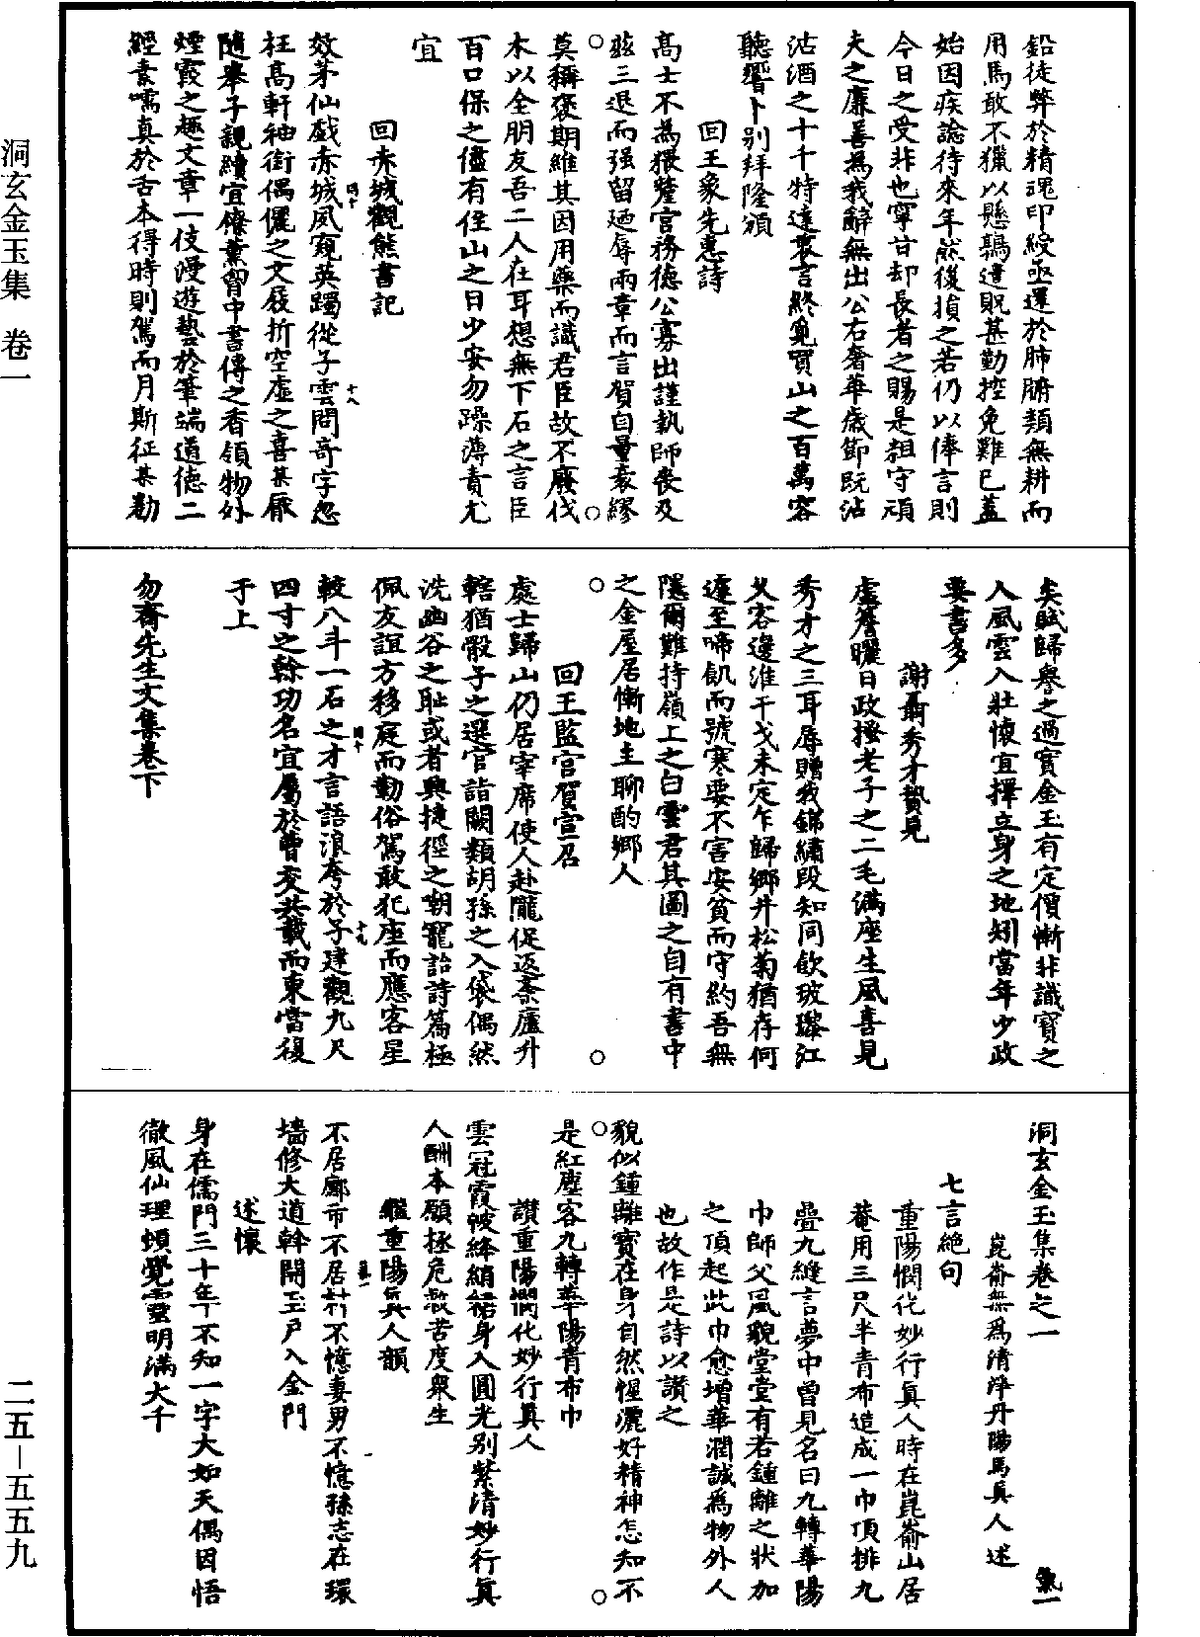 洞玄金玉集 卷一
二五—五五九
鉛徒弊於精魂印綬亟還於肺腑類無耕而
用馬敢不獵以懸鶉遽貺甚勤控免難已蓋
始因疾諗待來年然後損之若仍以俸言則
今日之受非也寧甘却長者之賜是粗守頑
夫之廉善為我辭無出公右奢華歲節既沾
沽酒之十千特達衷言終寬買山之百萬容
聽響卜別拜隆頒
回王象先惠詩
高士不為猥釐宮務德公寡出謹執師喪及
茲三退而强留廼辱兩章而言賀自量衰繆
莫稱褒期維其因用藥而識君臣故不廢伐
木以全朋友吾二人在耳想無下石之言臣
百口保之儘有住山之日少安勿躁薄責尤
宜
回赤城觀熊書記
四十
效茅仙戲赤城夙窺英躅從子雲問奇字忽
十八
枉高軒袖銜偶儷之文屐折空虛之喜某厥
隨舉子親續宜僚薰胷中書傳之香領物外
煙霞之趣文章一伎漫遊藝於筆端道德二
經素嚅真於舌本得時則駕而月斯征某勤
矣賦歸譽之過實金玉有定價慚非識寶之
人風雲入壯懷宜擇立身之地矧當年少政
要書多
謝聶秀才贄見
虛簷曬日政搔老子之二毛滿座生風喜見
秀才之三耳辱贈我錦繡段知同飲玻瓈江
父客邊淮干戈未定乍歸鄉井松菊猶存何
遽至啼飢而號寒要不害安貧而守約吾無
隱爾難持嶺上之白雲君其圖之自有書中
之金屋居慚地主聊酌鄉人
回王監宮賀宣召
處士歸山仍居宰席使人赴隴促返棊廬升
轄猶骰子之選官詣闕類胡孫之入袋偶然
洗幽谷之恥或者興捷徑之嘲寵詒詩篇極
佩友誼方移庭而勤俗駕敢犯座而應客星
四十
較八斗一石之才言語浪夸於子建觀九尺
十九
四寸之榦功名宜屬於曹交共載而東當復
于上
勿齋先生文集卷下
洞玄金玉集卷之一
氣一
崑崙無為清淨丹陽馬真人述
七言絕句
重陽憫化妙行真人時在崑崙山居
菴用三尺半青布造成一巾頂排九
疊九縫言夢中曾見名曰九轉華陽
巾師父風貌堂堂有若鍾離之狀加
之頂起此巾愈增華潤誠為物外人
也故作是詩以讚之
貌似鍾離寶在身自然惺灑好精神怎知不
是紅塵客九轉華陽青布巾
讃重陽憫化妙行真人
雲冠霞帔絳綃裙身入圓光別紫清妙行真
人酬本願拯危救苦度眾生
繼重陽真人韻
不居鄽市不居村不憶妻男不憶孫志在環
墻修大道斡開玉戶入金門
述懷
身在儒門三十年不知一字大如天偶因悟
徹風仙理頓覺靈明滿大千